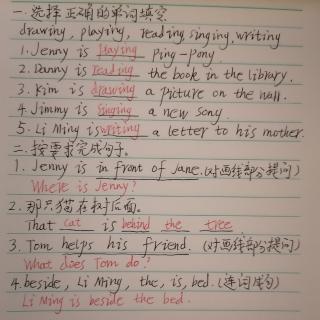 一.选择正确的单词填空.
drawing, playing, reading, singing, writing
1. Jenny is playing ping-pony.
2. Danny is reading the book in the library.
3. Kim is drawing a picture on the wall.
4. Jimmy is singing a new song.
5. Li Ming is writing a letter to his mother.
二.按要求完成句子。
1. Jenny is in front of Jane.(对画线部分提问)
Where is Jenny?
2. 那只猫在树后面。
That cat is behind the tree
3. Tom helps his friend. (对画线部分提问)
What does Tom do?
4. beside, Li Ming, the, is, bed.(连词成句)
Li Ming is beside the bed.